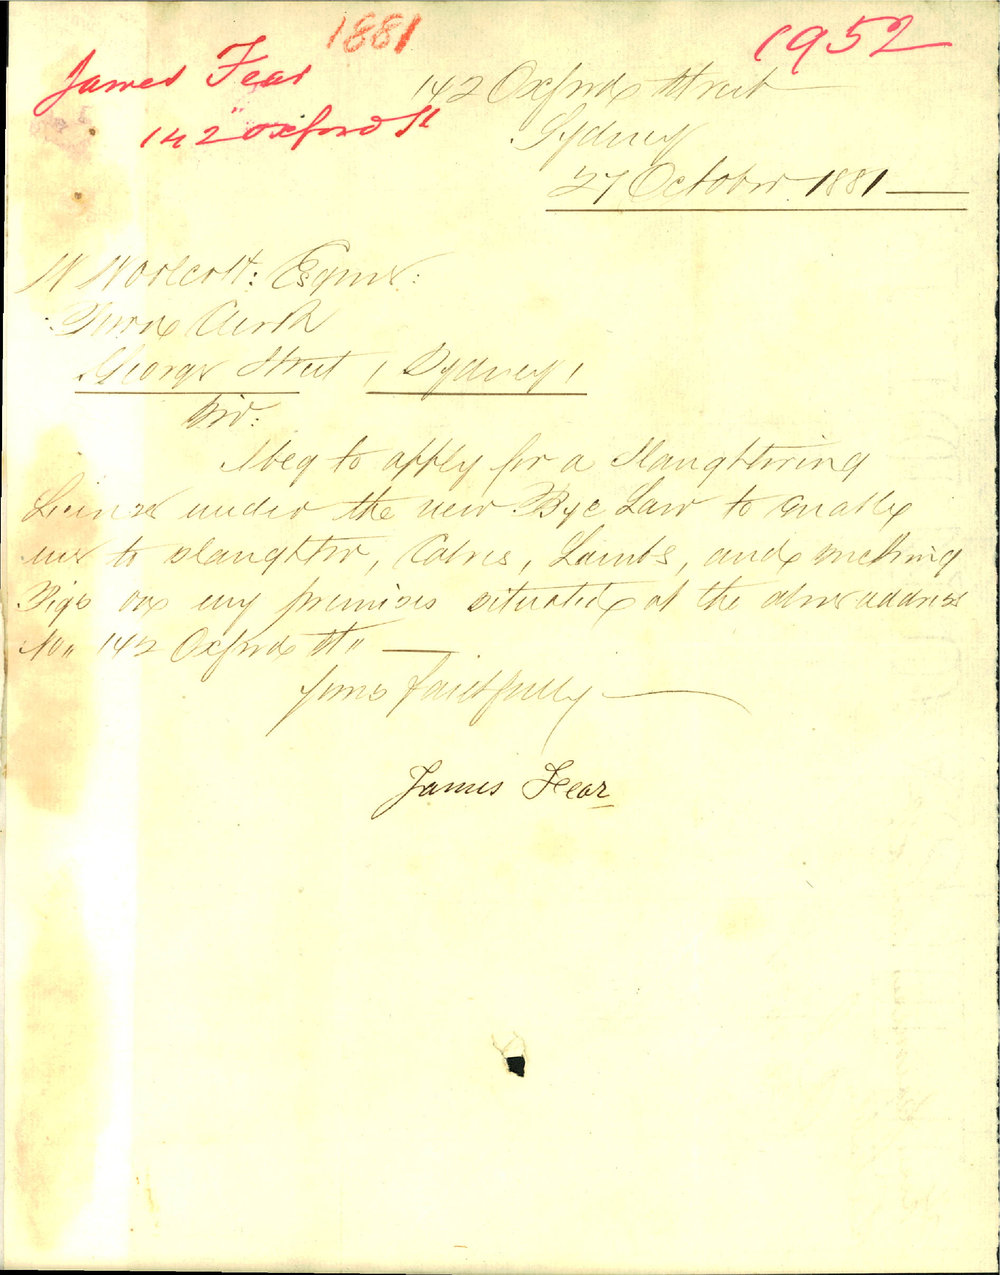 1881
1952
James Fear
142 Oxford St
142 Oxford Street
Sydney
27 October 1881
W Wolcott: Esquire:
Town Clerk
George Street, Sydney,
Sir:
I beg to apply for a Slaughtering
License under the new Bye Law to enable
me to slaughter, Calves, Lambs, and sucking
Pigs on my premises situated at the above address
No,, 142 Oxford St,,
Yours faithfully
James Fear